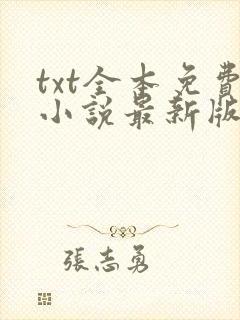 txt全本免費
小說最新版
張志勇